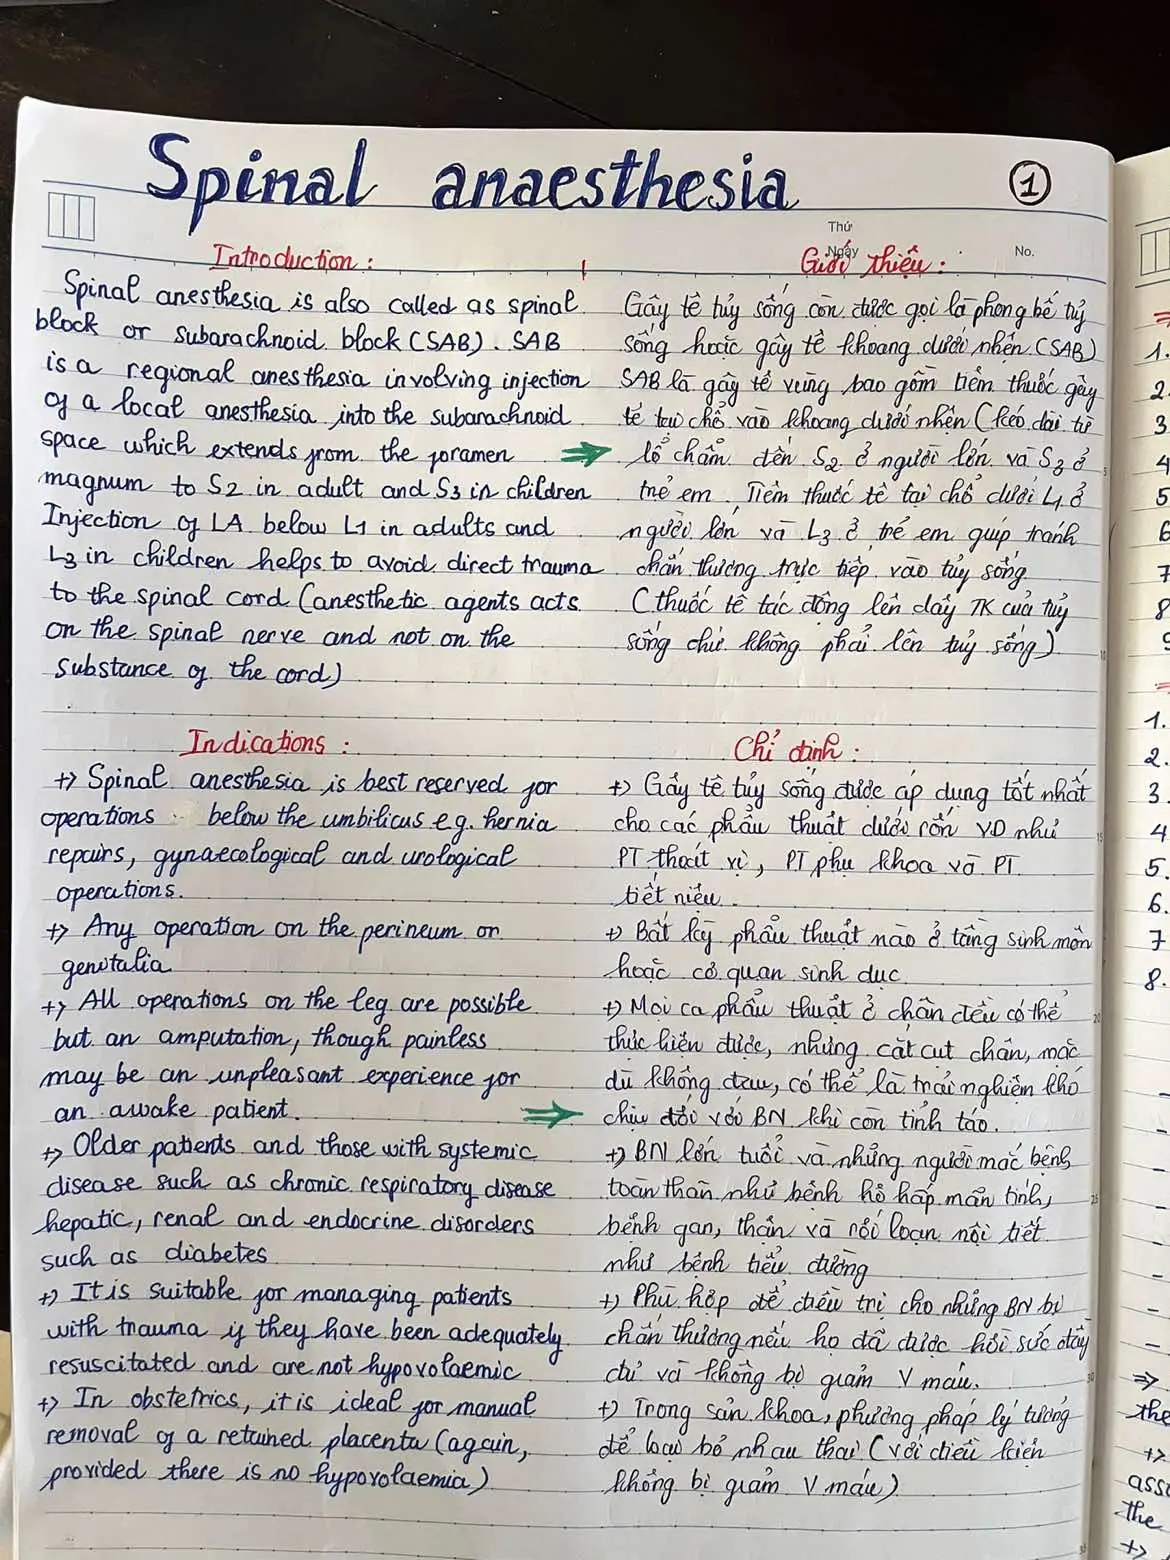 Spinal anaesthesia
1
Thứ
Ngày
No.
Introduction :
Spinal anesthesia is also called as spinal
block or subarachnoid block (SAB). SAB
is a regional anesthesia involving injection
of a local anesthesia into the subarachnoid
space which extends from the foramen
magnum to S2 in adult and S3 in children
Injection of LA below L1 in adults and
L3 in children helps to avoid direct trauma
to the spinal cord (anesthetic agents acts
on the spinal nerve and not on the
substance of the cord)
Giới thiệu :
Gây tê tủy sống còn được gọi là phong bế tủy
sống hoặc gây tê khoang dưới nhện (SAB)
SAB là gây tê vùng bao gồm tiêm thuốc gây
tê tại chỗ vào khoang dưới nhện (kéo dài từ
⇒ lỗ chẩm đến S2 ở người lớn và S3 ở
trẻ em. Tiêm thuốc tê tại chỗ dưới L1 ở
người lớn và L3 ở trẻ em giúp tránh
chấn thương trực tiếp vào tủy sống
(thuốc tê tác động lên dây TK của tuỷ
sống chứ không phải lên tuỷ sống)
Indications :
+> Spinal anesthesia is best reserved for
operations below the umbilicus e.g. hernia
repairs, gynaecological and urological
operations.
+> Any operation on the perineum or
genitalia
+> All operations on the leg are possible
but an amputation, though painless
may be an unpleasant experience for
an awake patient.
+> Older patients and those with systemic
disease such as chronic respiratory disease
hepatic, renal and endocrine disorders
such as diabetes
+> It is suitable for managing patients
with trauma if they have been adequately
resuscitated and are not hypovolaemic
+> In obstetrics, it is ideal for manual
removal of a retained placenta (again,
provided there is no hypovolaemia)
Chỉ định :
+> Gây tê tủy sống được áp dụng tốt nhất
cho các phẫu thuật dưới rốn VD như
PT thoát vị, PT phụ khoa và PT
tiết niệu.
+> Bất kỳ phẫu thuật nào ở tầng sinh môn
hoặc cơ quan sinh dục
+> Mọi ca phẫu thuật ở chân đều có thể
thực hiện được, nhưng cắt cụt chân, mặc
dù không đau, có thể là trải nghiệm khó
⇒ chịu đối với BN khi còn tỉnh táo.
+> BN lớn tuổi và những người mắc bệnh
toàn thân như bệnh hô hấp mãn tính,
bệnh gan, thận và rối loạn nội tiết
như bệnh tiểu đường
+> Phù hợp để điều trị cho những BN bị
chấn thương nếu họ đã được hồi sức đầy
đủ và không bị giảm V máu.
+> Trong sản khoa, phương pháp lý tưởng
để loại bỏ nhau thai (với điều kiện
không bị giảm V máu)
1.
2
3
4
5
6
7
8
1.
2.
3.
4
5.
6.
7
8.
⇒
the
+>
the
+>